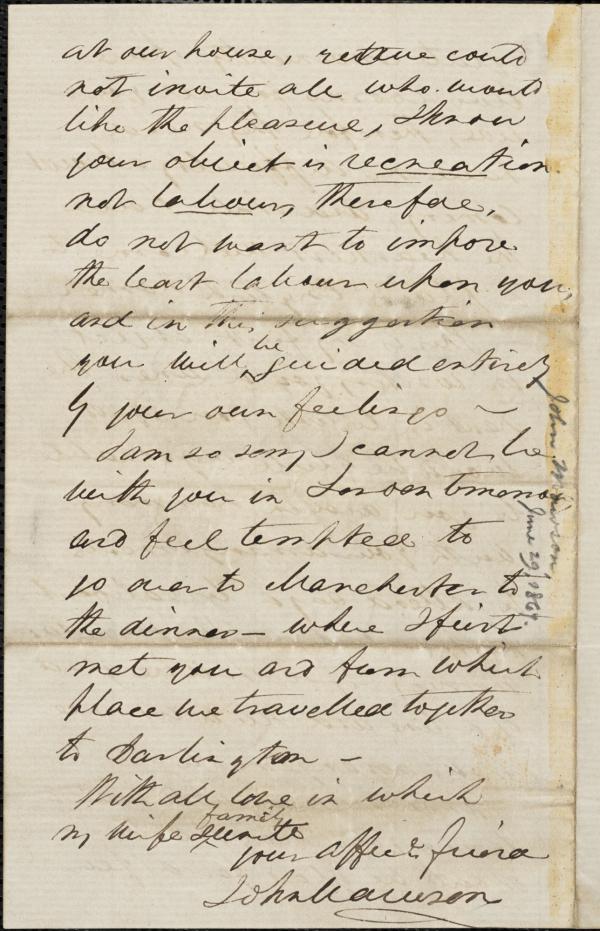 at our house, as we could
not invite all who would
like the pleasure, I know
your object is recreation
not labour, therefore,
do not want to impose
the least labour upon you,
and in this suggestion
you will be guided entirely
by your own feelings –
I am so sorry I cannot be
with you in London tomorrow
and feel tempted to
go over to Manchester to
the dinner – where I first
met you and from which
place we travelled together
to Darlington –
With all love in which
my wife & family unite
your affect. friend
John Mawson
John Mawson
June 29, 1867.